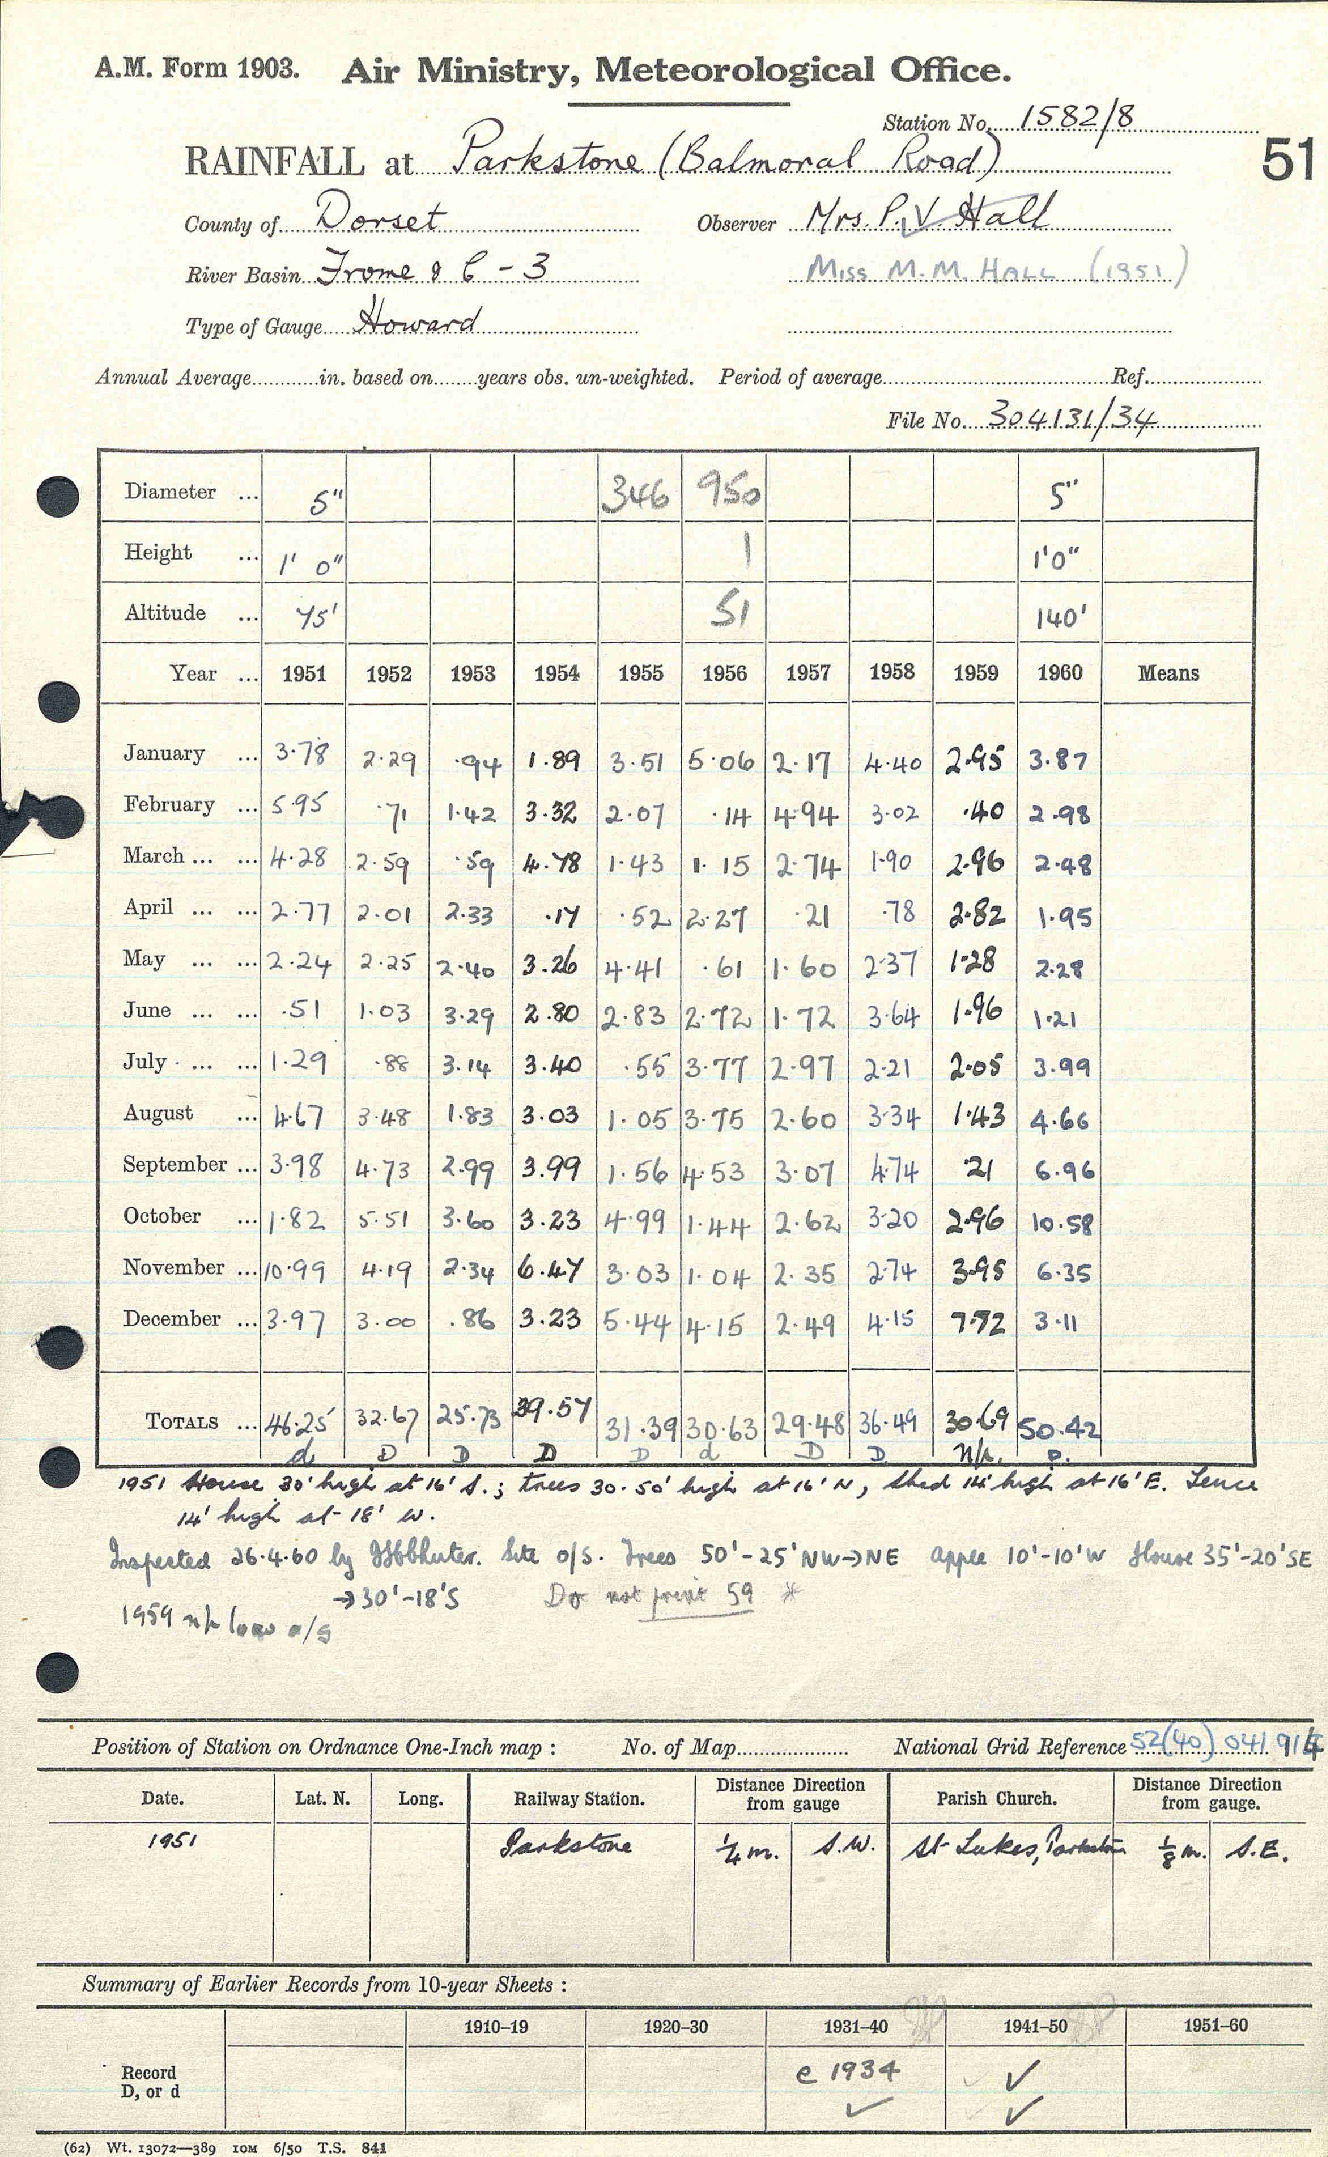 A.M. Form 1903. Air Ministry, Meteorological Office.
Station No. 1582/8
51
RAINFALL at Parkstone (Balmoral Road)
County of Dorset Observer Mrs. P. V. Hall
River Basin Frome & C - 3 Miss M. M. HALL (1951)
Type of Gauge Howard
Annual Average in. based on years obs. un-weighted. Period of average Ref.
File No. 304131/34
Diameter ... 5" 346 950 5"
Height ... 1' 0" 1 1'0"
Altitude ... 75' 51 140'
Year ... 1951 1952 1953 1954 1955 1956 1957 1958 1959 1960 Means
January ... 3.78 2.29 .94 1.89 3.51 5.06 2.17 4.40 2.95 3.87
February ... 5.95 .71 1.42 3.32 2.07 .14 4.94 3.02 .40 2.98
March ... ... 4.28 2.59 .59 4.78 1.43 1.15 2.74 1.90 2.96 2.48
April ... ... 2.77 2.01 2.33 .17 .52 2.27 .21 .78 2.82 1.95
May ... ... 2.24 2.25 2.40 3.26 4.41 .61 1.60 2.37 1.28 2.28
June ... ... .51 1.03 3.29 2.80 2.83 2.72 1.72 3.64 1.96 1.21
July ... ... 1.29 .88 3.14 3.40 .55 3.77 2.97 2.21 2.05 3.99
August ... 4.67 3.48 1.83 3.03 1.05 3.75 2.60 3.34 1.43 4.66
September ... 3.98 4.73 2.99 3.99 1.56 4.53 3.07 4.74 .21 6.96
October ... 1.82 5.51 3.60 3.23 4.99 1.44 2.62 3.20 2.96 10.58
November ... 10.99 4.19 2.34 6.47 3.03 1.04 2.35 2.74 3.95 6.35
December ... 3.97 3.00 .86 3.23 5.44 4.15 2.49 4.15 7.72 3.11
TOTALS ... 46.25 32.67 25.73 39.57 31.39 30.63 29.48 36.49 30.69 50.42
d D D D D d D D N/p. D.
1951 House 30' high at 16' S.; trees 30-50' high at 16' N, shed 14' high at 16' E. Fence
14' high at 18' W.
Inspected 26.4.60 by Site o/s. Trees 50'-25' NW→NE Apple 10'-10'W House 35'-20'SE
→30'-18'S Do not print 59 *
1959 n/p low o/s
Position of Station on Ordnance One-Inch map : No. of Map National Grid Reference 52(40) 041 914
Date. Lat. N. Long. Railway Station. Distance Direction from gauge Parish Church. Distance Direction from gauge.
1951 Parkstone ¼ m. S.W. St Lukes, Parkstone ⅛ m. S.E.
Summary of Earlier Records from 10-year Sheets :
1910–19 1920–30 1931–40 1941–50 1951–60
Record D, or d c 1934 ✓ ✓
✓ ✓
(62) Wt. 13072—389 10M 6/50 T.S. 841